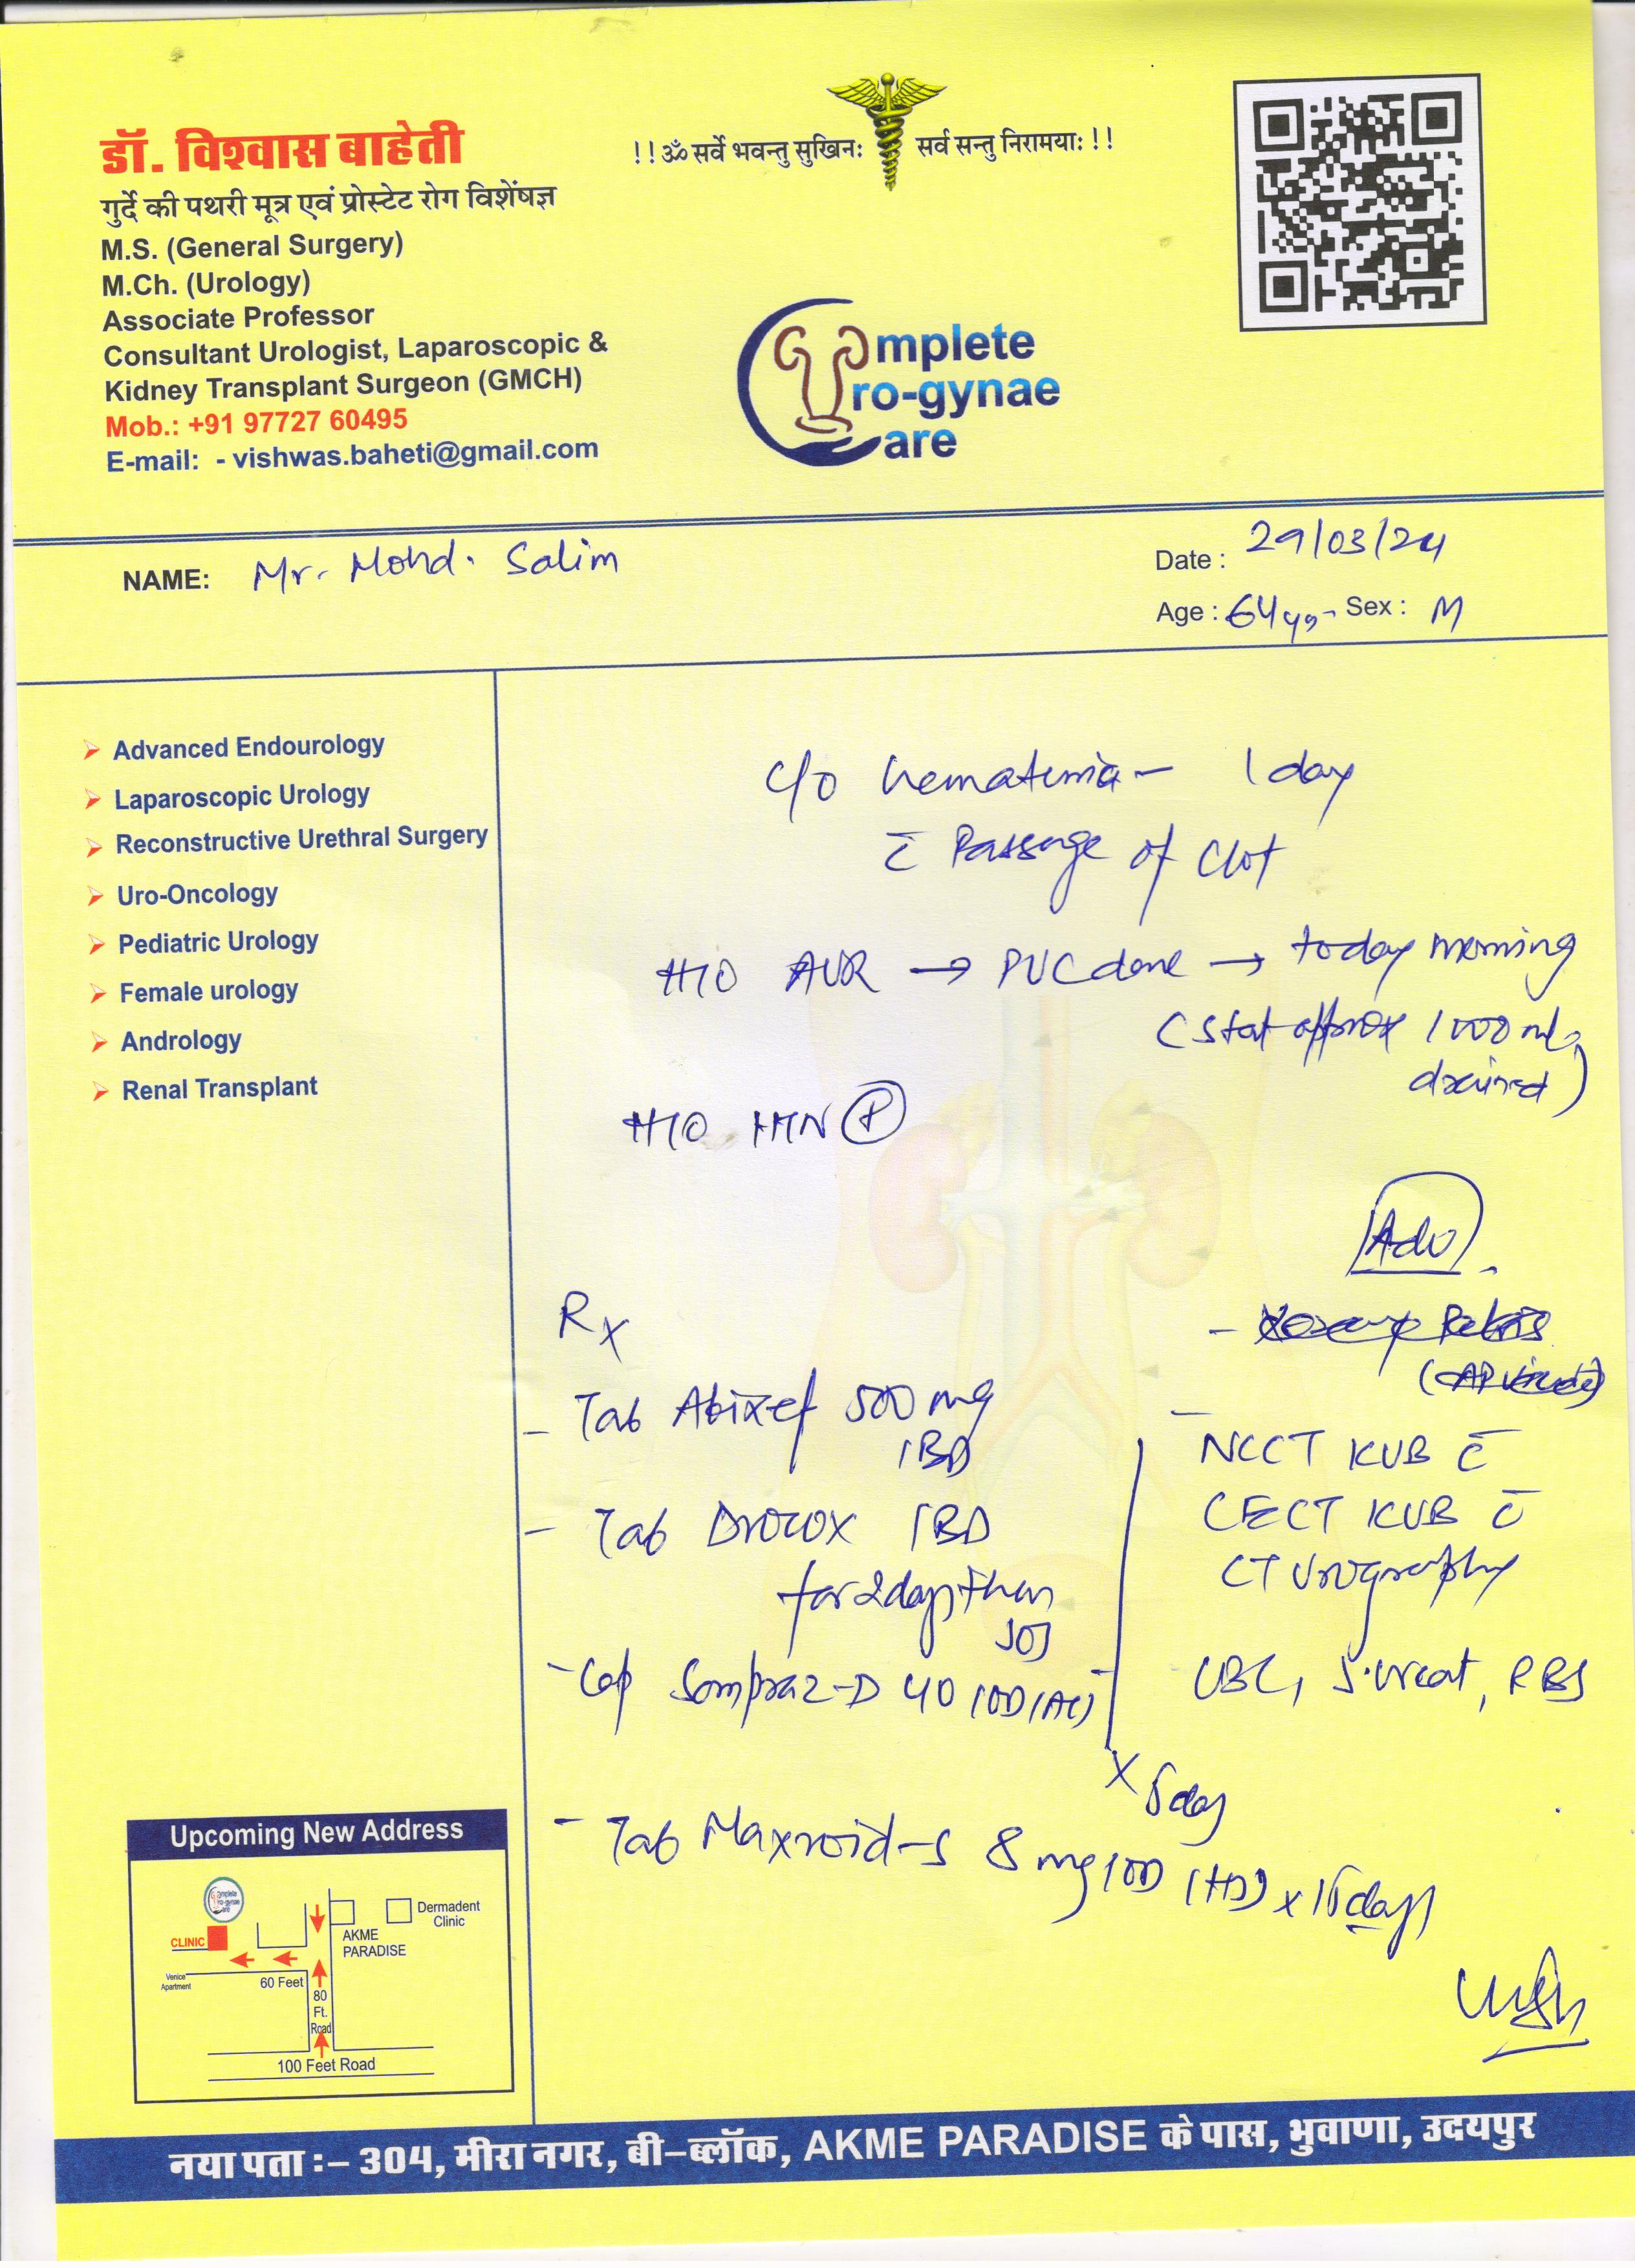 डॉ. विश्वास बाहेती
गुर्दे की पथरी मूत्र एवं प्रोस्टेट रोग विशेंषज्ञ
M.S. (General Surgery)
M.Ch. (Urology)
Associate Professor
Consultant Urologist, Laparoscopic &
Kidney Transplant Surgeon (GMCH)
Mob.: +91 97727 60495
E-mail: - vishwas.baheti@gmail.com
!!ॐ सर्वे भवन्तु सुखिनः सर्व सन्तु निरामयाः !!
Complete
Uro-gynae
Care
NAME: Mr. Mohd. Salim
Date : 29/03/24
Age : 64 yrs Sex : M
Advanced Endourology
Laparoscopic Urology
Reconstructive Urethral Surgery
Uro-Oncology
Pediatric Urology
Female urology
Andrology
Renal Transplant
c/o hematuria - 1 day
c̄ Passage of Clot
H/O AUR → PUC done → today morning
(stat approx 1000 ml
drained)
H/O HTN (+)
Adv
NCCT KUB c̄
CECT KUB c̄
CT Urography
CBC, S.creat, RBS
Rx
- Tab 500 mg
1BD
- Tab 1BD
for 2 days then
SOS
- Cap Sompraz-D 40 1OD (AC)
x 5 day
- Tab Maxvoid-S 8 mg 1OD x 15 days
Upcoming New Address
Complete
Uro-gynae
Care
CLINIC
Venice
Apartment
60 Feet
80
Ft.
Road
AKME
PARADISE
Dermadent
Clinic
100 Feet Road
नया पता :– 304, मीरा नगर, बी–ब्लॉक, AKME PARADISE के पास, भुवाणा, उदयपुर